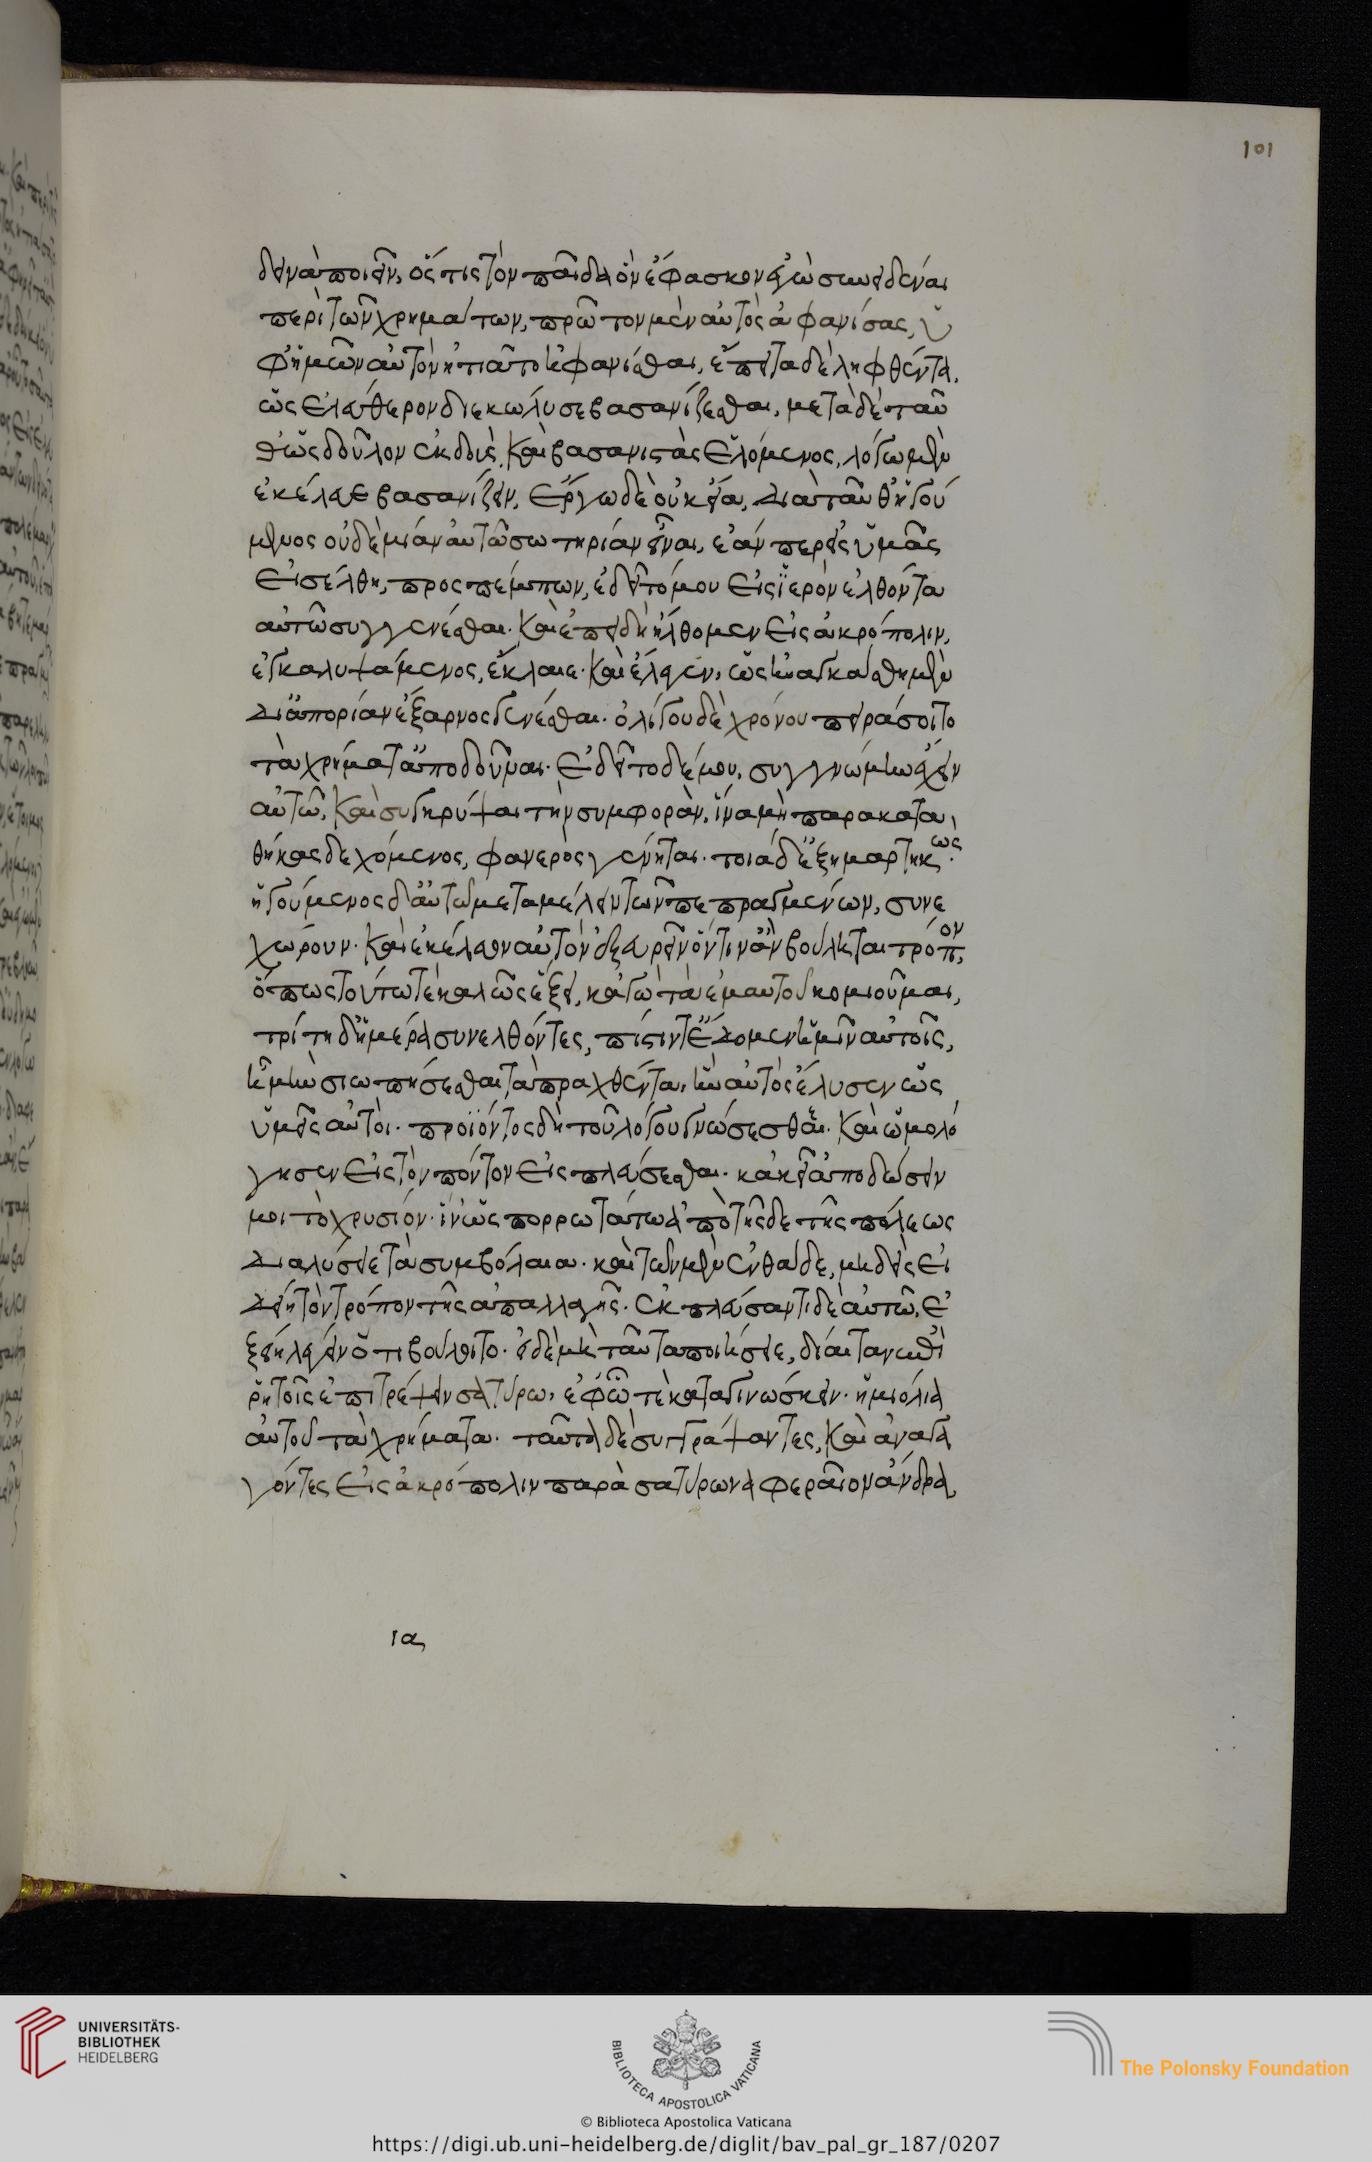 101
δεινὰ ποιεῖν, ὅστις τὸν παῖδα ὃν ἔφασκον ἐγὼ συνειδέναι
περὶ τῶν χρημάτων, πρῶτον μὲν αὐτὸς ἀφανίσας, ὑ
φ' ἡμῶν αὐτὸν ἠτιᾶτο ἠφανίσθαι, ἔπειτα δὲ ληφθέντα,
ὡς ἐλεύθερον διεκώλυσε βασανίζεσθαι, μετὰ δὲ ταῦ
θ' ὡς δοῦλον ἐκδοὺς, καὶ βασανιστὰς ἑλόμενος, λόγω μὲν
ἐκέλευε βασανίζειν, ἔργω δὲ οὐκ εἴα, διὰ ταῦθ' ἡγού
μενος οὐδὲ μίαν αὐτῶ σωτηρίαν εἶναι, ἐάν περ εἰς ὑμᾶς
εἰσέλθη, προσπέμπων, ἐδεῖτό μου εἰς ἱερὸν ἐλθόντα
αὐτῶ συγγενέσθαι. καὶ ἐπειδὴ ἤλθομεν εἰς ἀκρόπολιν,
ἐγκαλυψάμενος, ἔκλαιε. καὶ ἔλεγεν, ὡς ἠναγκάσθη μὲν
δι' ἀπορίαν ἔξαρνος γενέσθαι. ὀλίγου δὲ χρόνου πειράσοιτο
τὰ χρήματα ἀποδοῦναι. ἐδεῖτο δέ μου, συγγνώμην ἔχειν
αὐτῶ, καὶ συγκρύψαι τὴν συμφορὰν, ἵνα μὴ παρακατα
θήκας δεχόμενος, φανερὸς γένηται. τοιάδε ἐξημαρτηκώς.
ἡγούμενος δ' αὐτῶ μεταμέλειν τῶν πεπραγμένων, συνε
χώρουν. καὶ ἐκέλευον αὐτὸν ἐξευρεῖν ὅντιν' ἂν βούληται τρόπον,
ὅπως τούτω τὲ καλῶς ἕξει, κἀγὼ τἀ ἐμαυτοῦ κομιοῦμαι,
τρίτη δ' ἡμέρα συνελθόντες, πίστιν τὲ ἔδομεν ἡμῖν αὐτοῖς,
ἦ μὴν σιωπήσεσθαι τὰ πραχθέντα, ἣν αὐτὸς ἔλυσεν ὡς
ὑμεῖς αὐτοὶ. προϊόντος δὴ τοῦ λόγου γνώσεσθαι. καὶ ὡμολό
γησεν εἰς τὸν πόντον εἰσπλεύσεσθαι. κἀκεῖ ἀποδώσειν
μοι τὸ χρυσίον. ἵν' ὡς πορρωτάτω ἀπὸ τῆς δε τῆς πόλεως
διαλύσειε τὰ συμβόλαια. καὶ τῶν μὲν ἐνθάδε, μηδεὶς εἰ
δείη τὸν τρόπον τῆς ἀπαλλαγῆς. ἐκπλεύσαντι δὲ αὐτῶ, ἐ
ξείη λέγειν ὅτι βούλοιτο. εἰ δὲ μὴ ταῦτα ποιήσειε, δίαιταν ἐπὶ
ῥητοῖς ἐπιτρέψειν σατύρω, ἐφ' ὧ τὲ καταγινώσκειν. ἡμιόλια
αὐτοῦ τὰ χρήματα. ταῦτα δὲ συγγράψαντες, καὶ ἀναγα
γόντες εἰς ἀκρόπολιν παρὰ σατύρωνα φεραῖον ἄνδρα,
ια
UNIVERSITÄTS-
BIBLIOTHEK
HEIDELBERG
BIBLIOTECA APOSTOLICA VATICANA
The Polonsky Foundation
© Biblioteca Apostolica Vaticana
https://digi.ub.uni-heidelberg.de/diglit/bav_pal_gr_187/0207